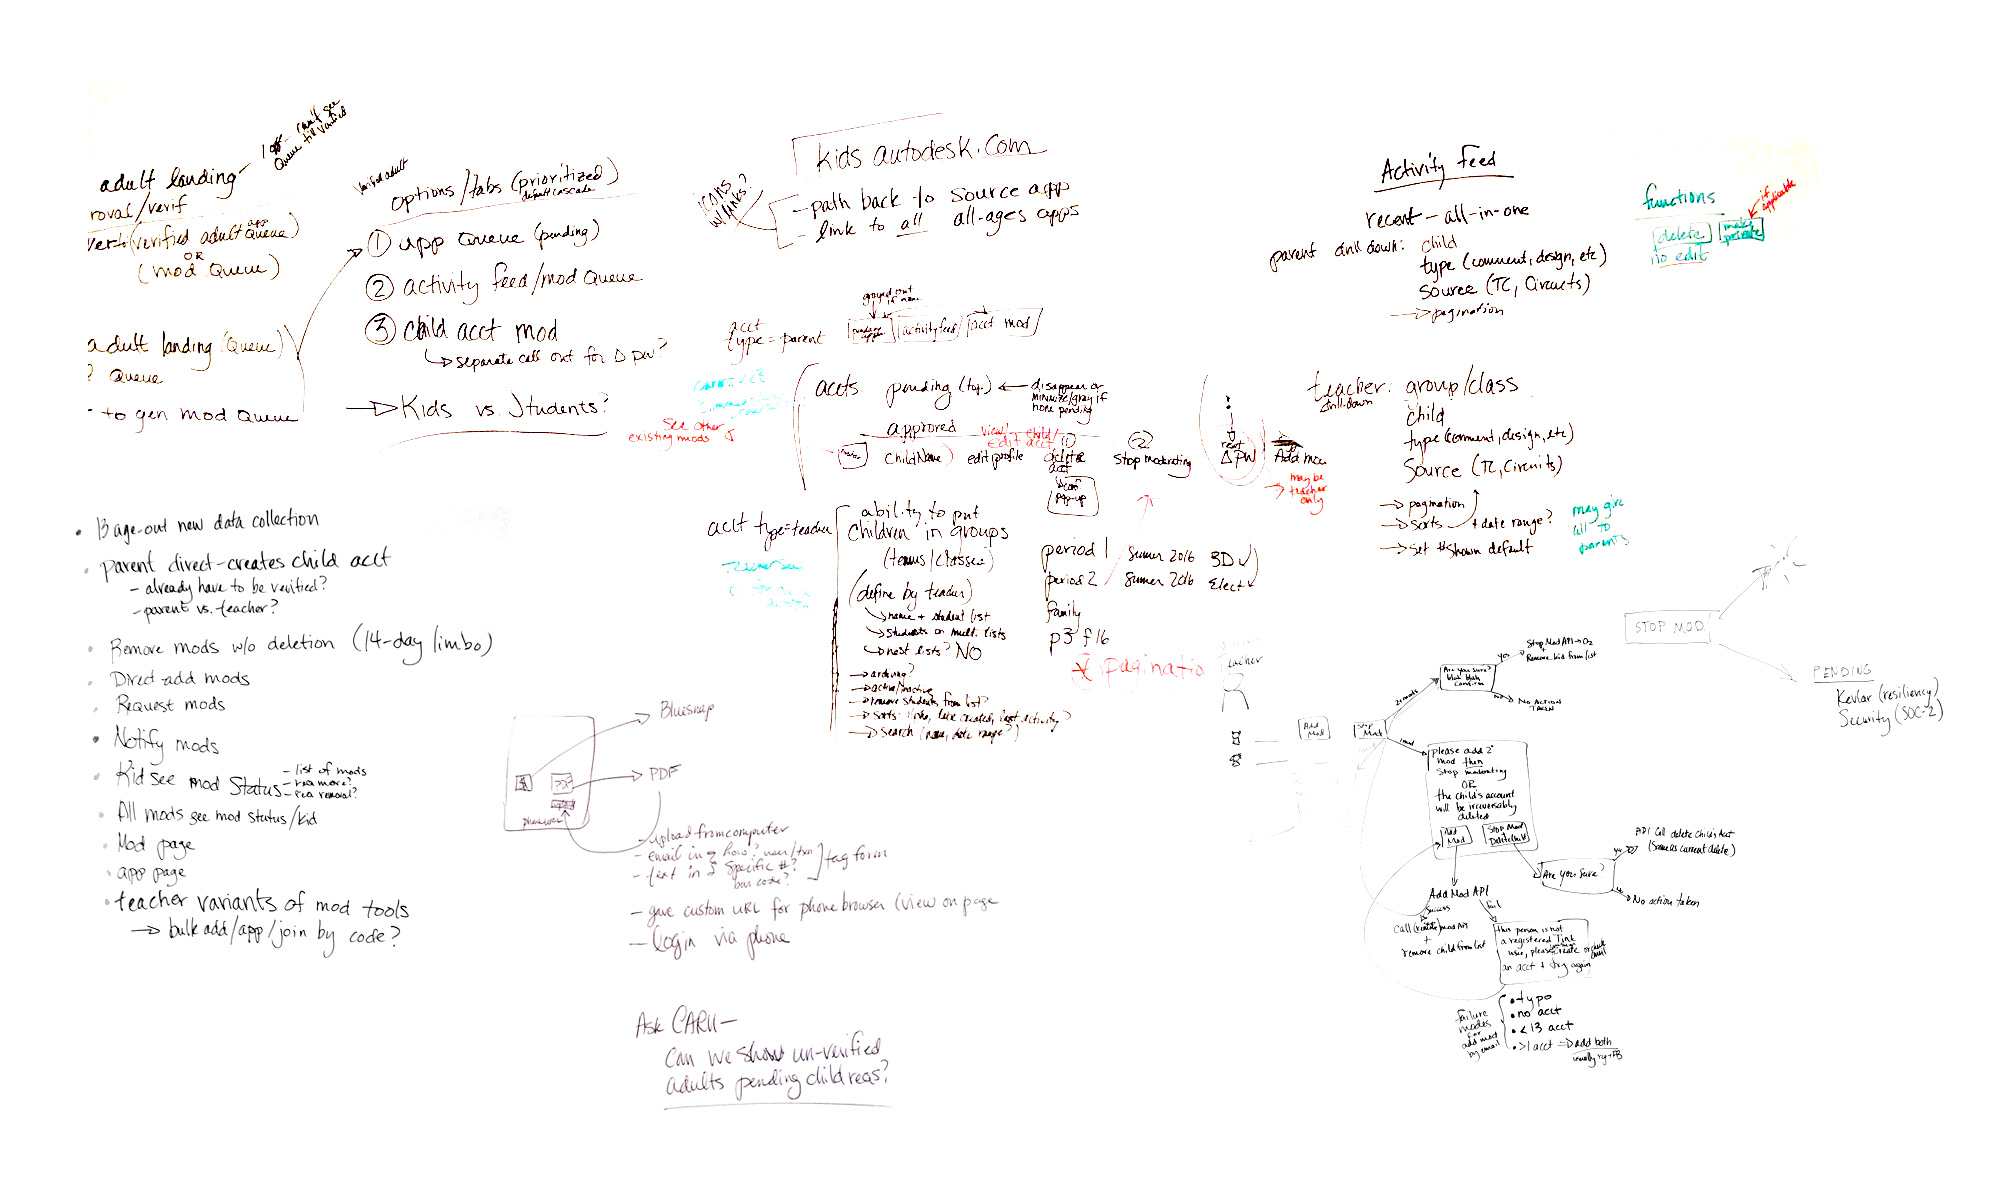 adult landing
can't see
Queue till verified
roval/verif
(verified adult app Queue)
OR
(mod Queue)
adult landing (Queue)
? Queue
to gen mod Queue
verified adult
options/tabs (prioritized)
default cascade
① app Queue (pending)
② activity feed/mod Queue
③ child acct mod
↳ separate call out for Δ PW?
→ Kids vs. Students?
kids autodesk.com
icons w/links?
- path back to source app
- link to all all-ages apps
grayed out if none
acct type = parent
activity feed
acct mod
See other existing mods
accts
pending (top)
← disappear or minimize/gray if none pending
approved
view/edit child acct
child Name
edit profile
① delete acct
conf pop-up
② Stop moderating
reset Δ PW
Add mod
→ may be teacher only
acct type = teacher
ability to put children in groups
(teams/classes)
(define by teacher)
↳ name + student list
↳ students on mult. lists
↳ nest lists? NO
→ archiving?
→ active/inactive
→ remove students from list?
→ sorts: links, date created, last activity?
→ search (name, date range?)
period 1 Sumer 2016 3D
period 2 Sumer 2016 Elect
family
p3 f16
* Paginatio
Activity Feed
recent - all-in-one
parent drill down: child
type (comment, design, etc)
Source (TC, Circuits)
→ pagination
functions
delete
make private
if applicable
no edit
teacher: group/class
drill down
child
type (comment, design, etc)
Source (TC, Circuits)
→ pagination
→ sorts + date range?
→ set # shown default
may give all to parents
• 13 age-out new data collection
• parent direct-creates child acct
- already have to be verified?
- parent vs. teacher?
• Remove mods w/o deletion (14-day limbo)
• Direct add mods
• Request mods
• Notify mods
• Kid see mod status
- list of mods
- req more?
- req removal?
• All mods see mod status/kid
• Mod page
• app page
• teacher variants of mod tools
→ bulk add/app/join by code?
Bluesnap
PDF
PDF
- upload from computer
- email in how?
- text in specific #?
bar code?
tag form
- give custom URL for phone browser (view on page
- login via phone
Ask CARU -
can we show un-verified
adults pending child reqs?
teacher
Add Mod
Stop Mod
2+ mods
Are you sure? blah blah confirm
yes
Stop Mod API → O2
+
Remove kid from list
No Action Taken
1 mod
please add 2nd
mod then
Stop moderating
OR
the child's account
will be irreversably
deleted
Add Mod
Stop Mod/Delete Child
Are you sure?
API call delete child's Acct
(Same as current delete)
No action taken
Add Mod API
Success
fail
call (remove) mod API
+
remove child from list
this person is not
a registered Tink
user, please create or check email
an acct + try again
Failure modes for add mod by email
• typo
• no acct
• <13 acct
• >1 acct ⇒ add both
usually reg + FB
STOP MOD
PENDING
Kevlar (resiliency)
Security (SOC-2)